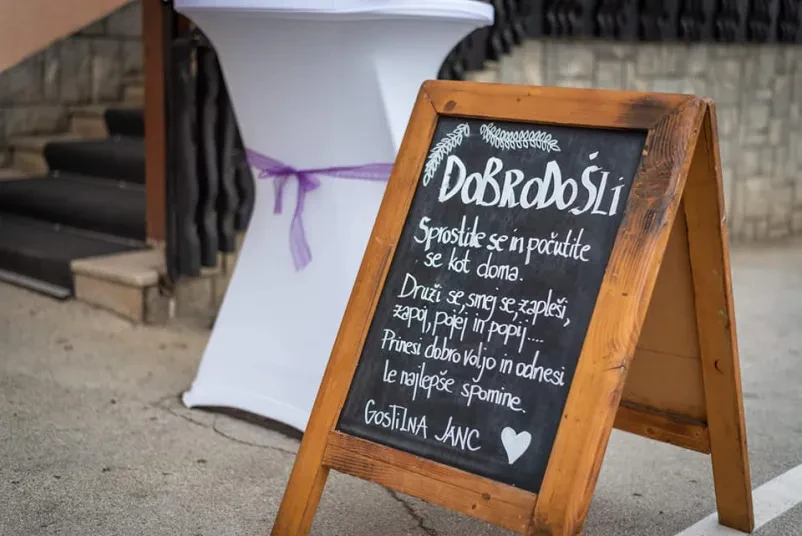 DOBRODOŠLI
Sprostite se in počutite
se kot doma.
Druži se, smej se, zapleši,
zapoj, pojej in popij....
Prinesi dobro voljo in odnesi
le najlepše spomine.
GOSTILNA JANC